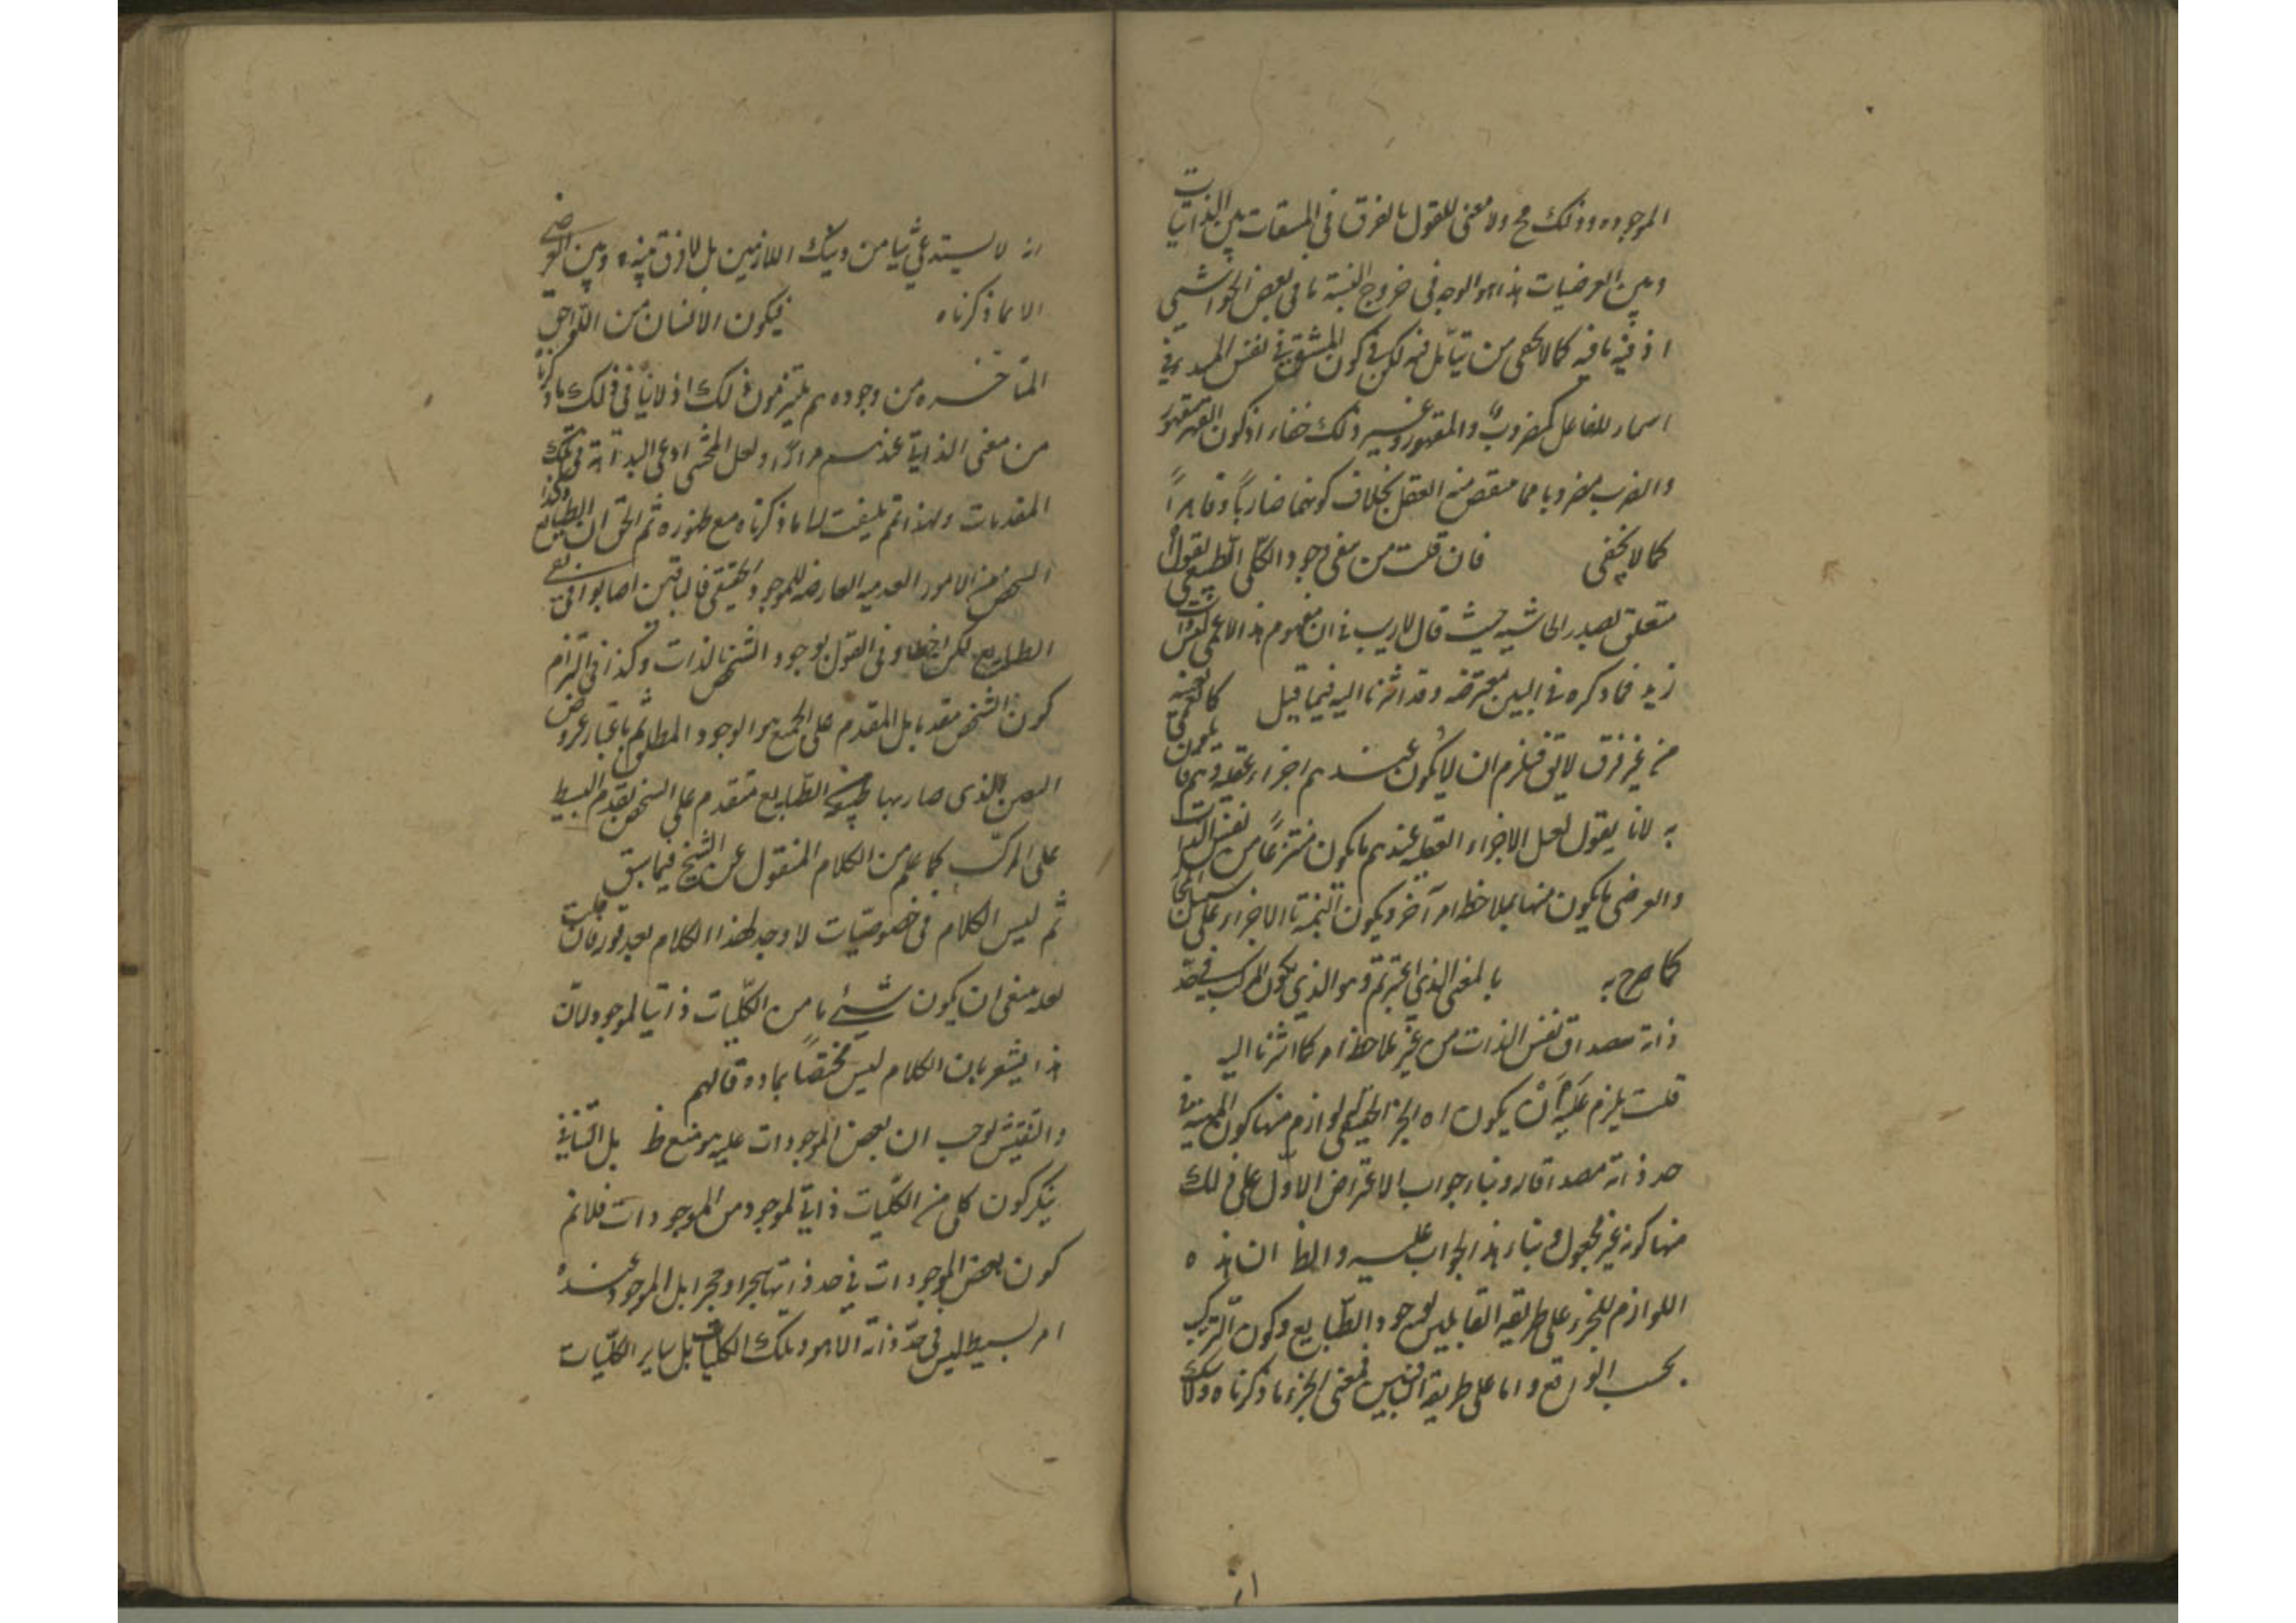 الموجوده وذلك مح ولا معنى للقول بالفرق فى المشتقات بين الذاتيات
وبين العرضيات هذا هو الوجه فى خروج النسبة ما فى بعض الحواشى
اذ فيه ما فيه كما لا يخفى من تأمل فيه لكن فى كون المشتق نفس المبدء فى
اسماء للفاعل كمضروب والمقهور وغير ذلك خفاء اذ كون القهر مقهورا
والضرب مضروبا مما العقل بخلاف كونهما ضاربًا وقاهرًا
كما لا يخفى فان قلت من نفى وجود الكلى الطبيعى يقول
متعلق بصدر الحاشيه حيث قال لا ريب فى ان مفهوم هذا الاعمى ليس ذات
زيد فما ذكره فى البين معترضه وقد اشرنا اليه فيما قبل
من غير فرق لاتى فيلزم ان لا يكون عندهم اجزاء عقليه وهم قائلون
به لانا نقول لعل الاجزاء العقليه عندهم ما يكون منتزعًا من نفس الذات
والعرضى ما يكون منها بملاحظة امر آخر ويكون تسمية الاجزاء على
كما صرح به بالمعنى الذى اعتبرتم وهو الذى يكون المركب فى حد
ذاته مصداق نفس الذات من غير ملاحظة امر كما اشرنا اليه
قلت يلزم عليه أن يكون اه الجزء الحقيقى لوازم منها كون المهية فى
حد ذاته مصداقا له وبناء جواب الاعتراض الاول على ذلك
منها كونه غير مجعول وبناء هذا الجواب عليه والظ ان هذه
اللوازم للجزء على طريقه القايلين بوجود الطبايع وكون التركيب
بحسب الواقع واما على طريقة النافين فمعنى الجزء ما ذكرناه ولا شك
انه لا يستدعى شيئا من ذينك اللازمين بل لا فرق بينه وبين العرضى
الا بما ذكرناه فيكون الانسان من اللواحق
المتأخره من وجوده هم يلتزمون ذلك اذ لا ينافى ذلك ما ذكرنا
من معنى الذاتى عندهم مرارًا ولعل المحشى ادعى البداهة فى تلك
المقدمات ولهذا لم يلتفت الى ما ذكرناه مع ظهوره ثم الحق ان الطبايع وكذا
التشخص من الامور العدميه العارضه للموجود الحقيقى فالباقين اصابوا فى نفى
الطبايع لكن اخطاوا فى القول بوجود الشخص بالذات وكذا فى التزام
كون الشخص مقدما بل المقدم على الجميع هو الوجود المطلق ثم باعتبار عروض
التعين الذى صار بها الطبايع متقدم على الشخص تقدم البسيط
على المركب كما علم من الكلام المنقول عن الشيخ فيما سبق
ثم ليس الكلام فى خصوصيات لا وجه لهذا الكلام بعد قوله فان قلت
لعله منفى ان يكون شئ ما من الكليات ذاتيا لموجود لان
هذا يشعر بان الكلام ليس مختصًا بمادة فالهم
والتفتيش يوجب ان بعض الموجودات عليه هو منع ظ بل النافى
ينكر كون كلى من الكليات ذاتى لموجود من الموجودات فلا نم
كون بعض الموجودات فى حد ذاتها شجرا وحجرا بل الموجود عنده
امر بسيط ليس فى حد ذاته الا هو وتلك الكليات بل ساير الكليات